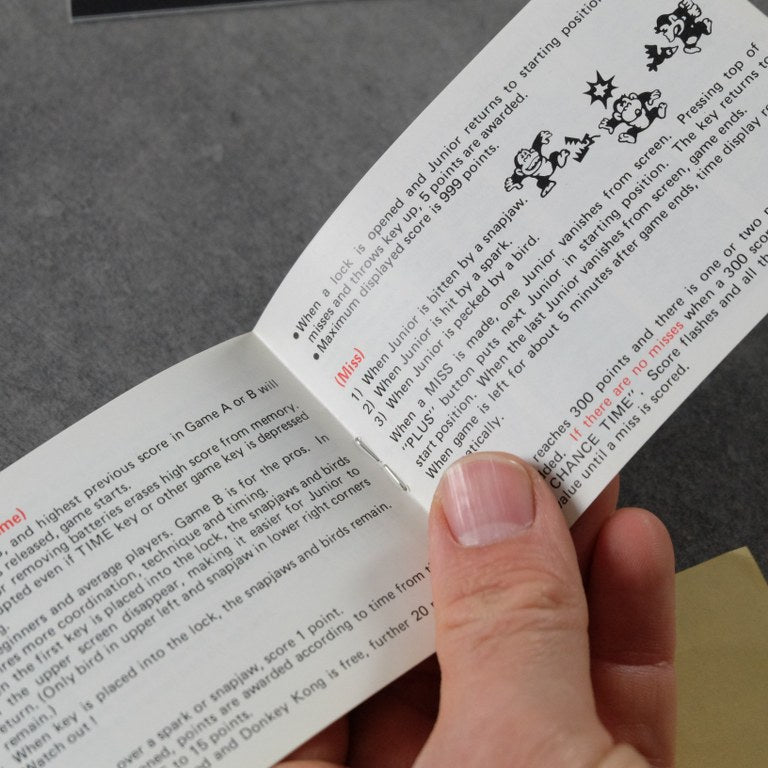 me)
, and highest previous score in Game A or B will
released, game starts.
or removing batteries erases high score from memory.
upted even if TIME key or other game key is depressed
g.
eginners and average players. Game B is for the pros. In
ures more coordination, technique and timing.
n the first key is placed into the lock, the snapjaws and birds
the upper screen disappear, making it easier for Junior to
eturn. (Only bird in upper left and snapjaw in lower right corners
remain.)
When key is placed into the lock, the snapjaws and birds remain.
Watch out !
over a spark or snapjaw, score 1 point.
ened, points are awarded according to time from
to 15 points.
d and Donkey Kong is free, further 20
• When a lock is opened and Junior returns to starting position
misses and throws key up, 5 points are awarded.
• Maximum displayed score is 999 points.
(Miss)
1) When Junior is bitten by a snapjaw.
2) When Junior is hit by a spark.
3) When Junior is pecked by a bird.
When a MISS is made, one Junior vanishes from screen. Pressing top of
"PLUS" button puts next Junior in starting position. The key returns to
start position. When the last Junior vanishes from screen, game ends.
When game is left for about 5 minutes after game ends, time display re
atically.
reaches 300 points and there is one or two
ded. If there are no misses when a 300 sco
CHANCE TIME". Score flashes and all th
alue until a miss is scored.